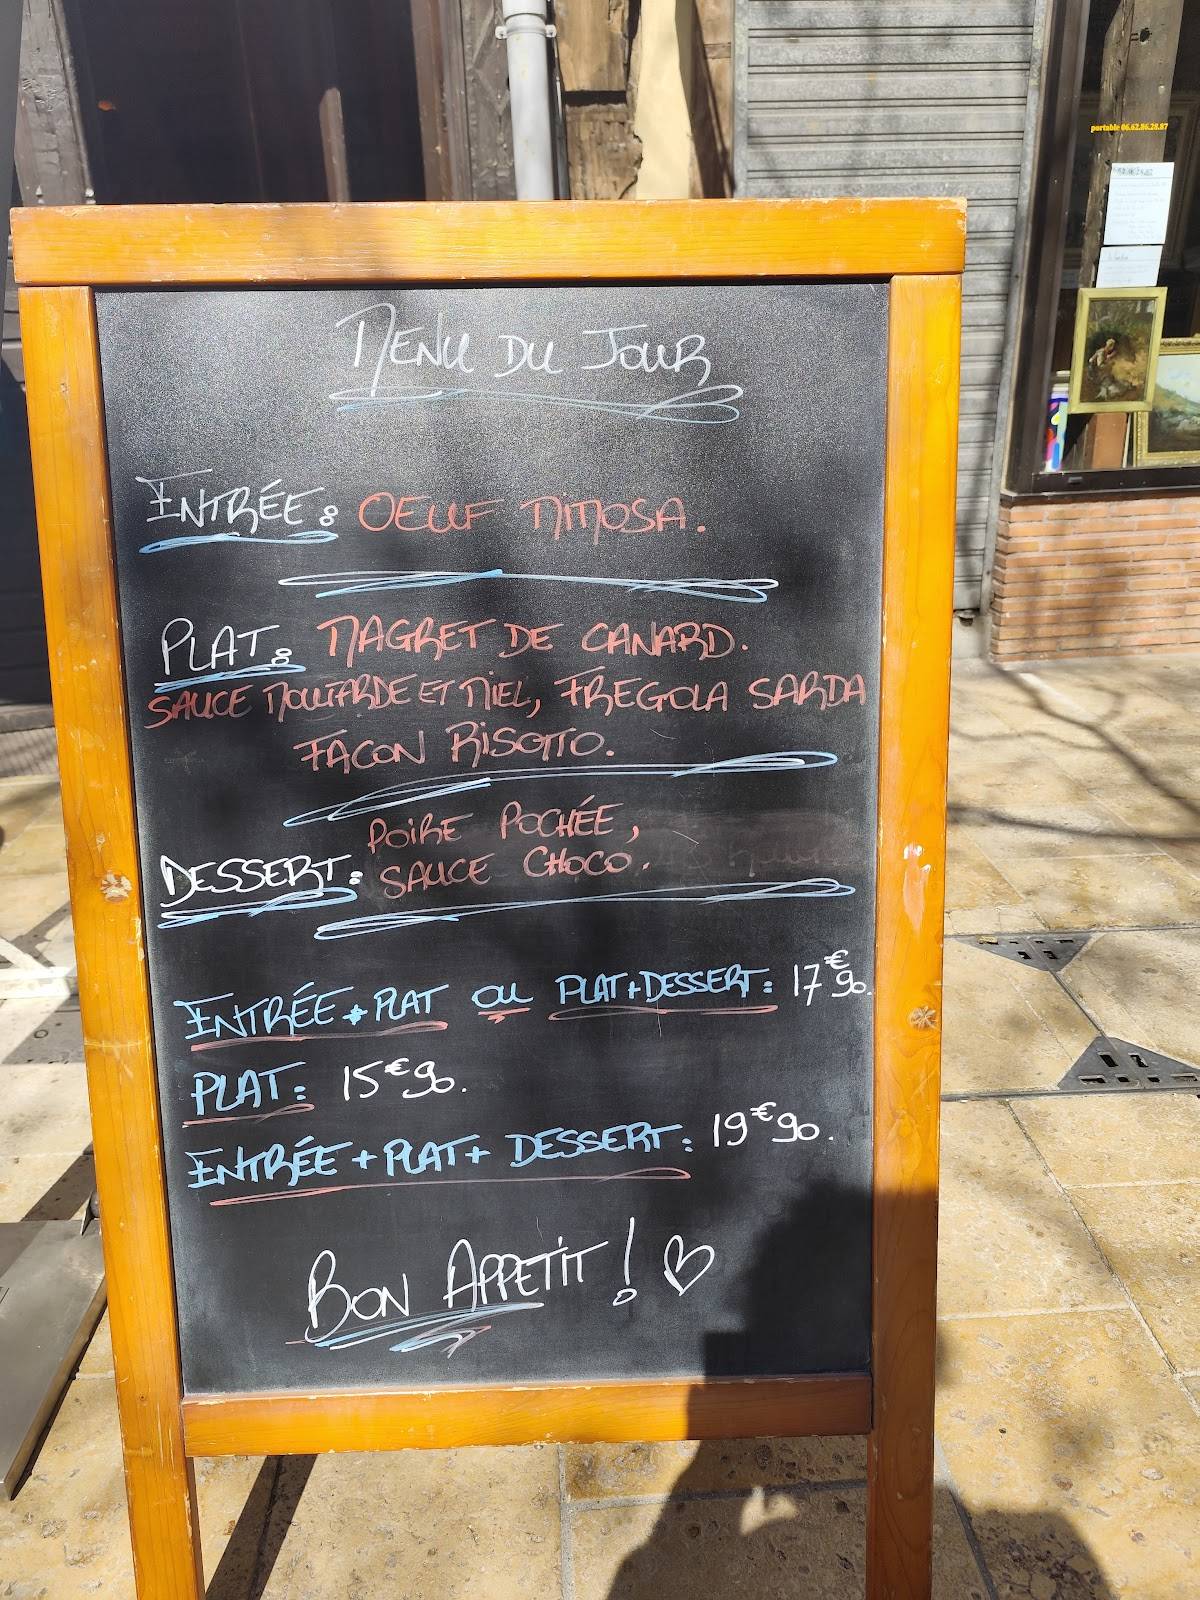 portable 06.62.86.28.87
MENU DU JOUR
ENTRÉE: OEUF MIMOSA.
PLAT: MAGRET DE CANARD.
SAUCE MOUTARDE ET MIEL, FREGOLA SARDA
FACON RISOTTO.
DESSERT: POIRE POCHÉE,
SAUCE CHOCO.
ENTRÉE + PLAT OU PLAT + DESSERT: 17€90.
PLAT: 15€90.
ENTRÉE + PLAT + DESSERT: 19€90.
BON APPETIT! ♡